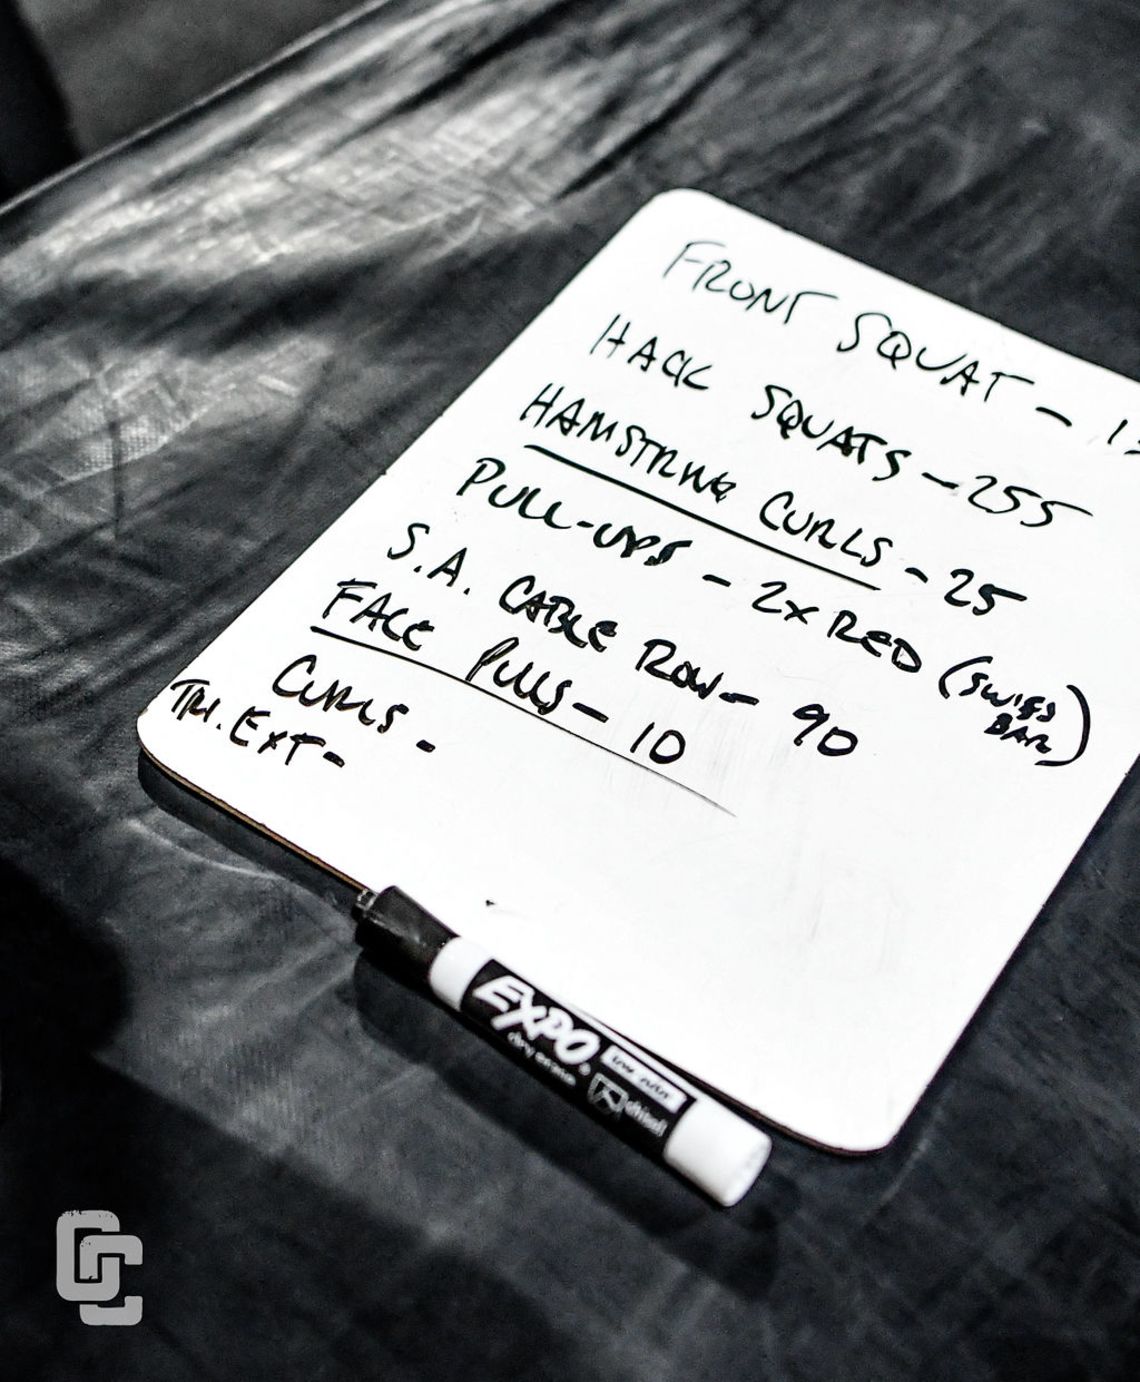 FRONT SQUAT - 13
HACK SQUATS - 255
HAMSTRING CURLS - 25
PULL-UPS - 2x RED (SWISS BAR)
S.A. CABLE ROW - 90
FACE PULLS - 10
CURLS -
TRI. EXT -
EXPO
dry erase
low odor
chisel